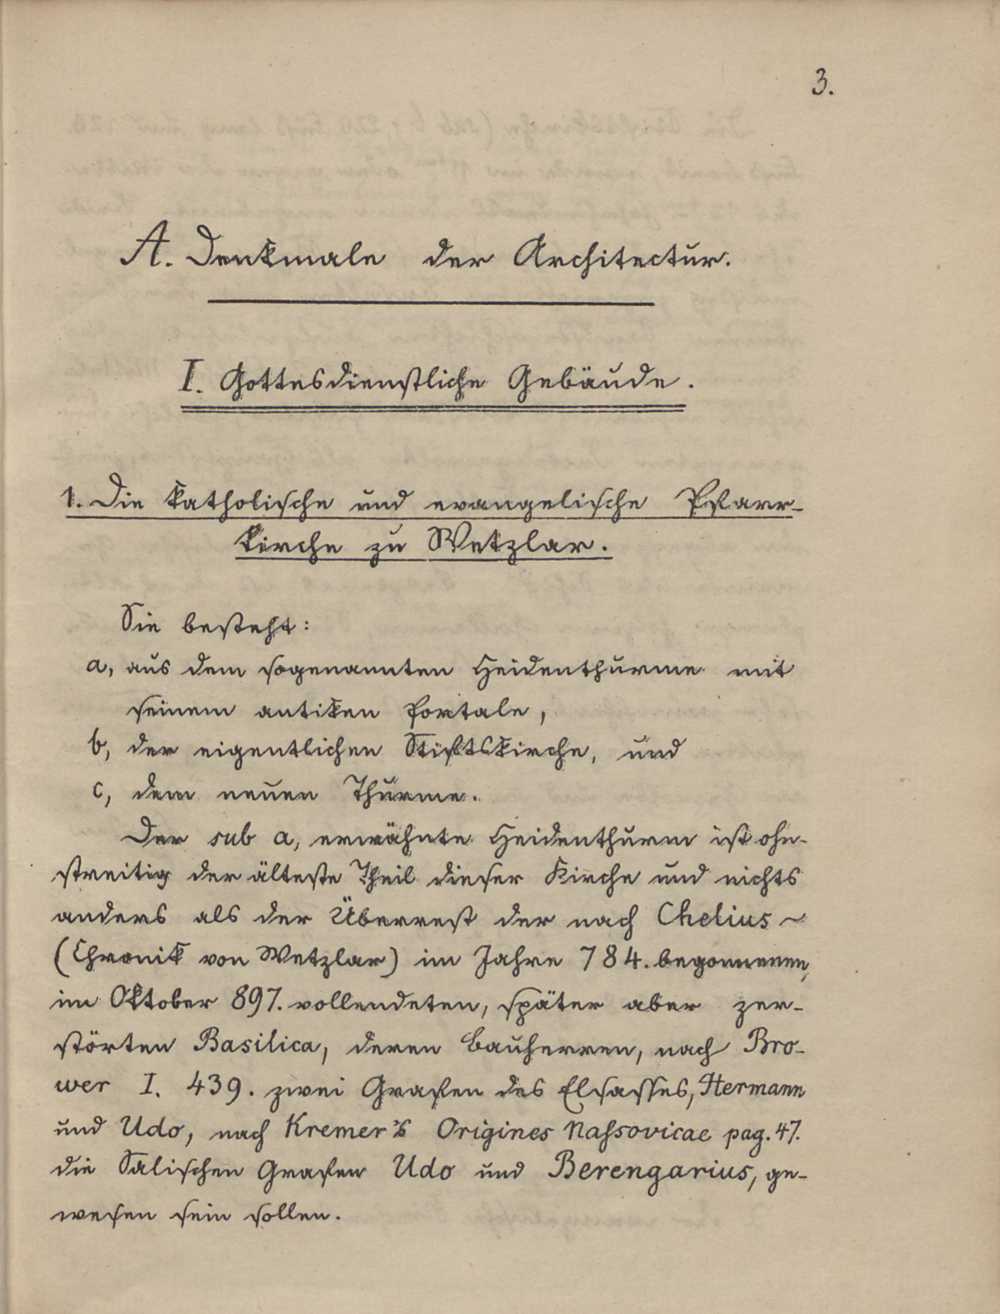 3.
A. Denkmale der Architectur.
I. Gottesdienstliche Gebäude.
1. Die katholische und evangelische Pfarr-
kirche zu Wetzlar.
Sie besteht:
a, aus dem sogenannten Heidenthurme mit
seinem antiken Portale,
b, der eigentlichen Stiftskirche, und
c, dem neuen Thurme.
Der sub a, erwähnte Heidenthurm ist ohn-
streitig der älteste Theil dieser Kirche und nichts
anders als der Überrest der nach Chelius ~
(Chronik von Wetzlar) im Jahre 784. begonnenen,
im Oktober 897. vollendeten, später aber zer-
störten Basilica, deren Bauherren, nach Bro-
wer I. 439. zwei Grafen des Elsasses, Hermann
und Udo, nach Kremer's Origines Nassovicae pag. 47.
die Salischen Grafen Udo und Berengarius, ge-
wesen sein sollen.